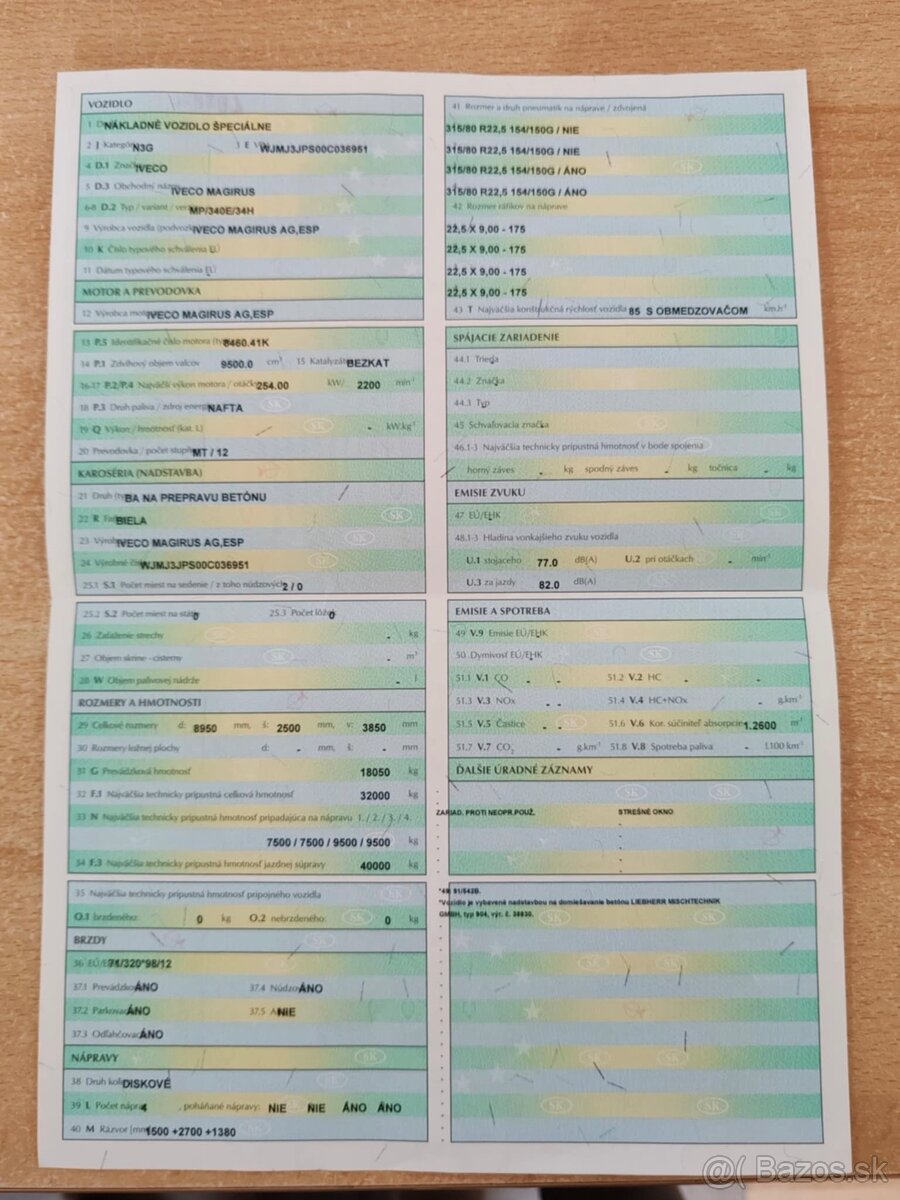 VOZIDLO
1 D NÁKLADNÉ VOZIDLO ŠPECIÁLNE
2 J Kategór N3G 3 E V WJMJ3JPS00C036951
4 D.1 Znač IVECO
5 D.3 Obchodný náz IVECO MAGIRUS
6-8 D.2 Typ / variant / ver MP/340E/34H
9 Výrobca vozidla (podvoz IVECO MAGIRUS AG,ESP
10 K Číslo typového schválenia EÚ
11 Dátum typového schválenia EÚ
MOTOR A PREVODOVKA
12 Výrobca mot IVECO MAGIRUS AG,ESP
13 P.5 Identifikačné číslo motora (ty 8460.41K
14 P.1 Zdvihový objem valcov 9500.0 cm³ 15 Katalyzát BEZKAT
16-17 P.2/P.4 Najväčší výkon motora / otáčk 254.00 kW/ 2200 min⁻¹
18 P.3 Druh paliva / zdroj energi NAFTA
19 Q Výkon / hmotnosť (kat. L) - kW.kg⁻¹
20 Prevodovka / počet stupň MT / 12
KAROSÉRIA (NADSTAVBA)
21 Druh (ty BA NA PREPRAVU BETÓNU
22 R Far BIELA
23 Výrob IVECO MAGIRUS AG,ESP
24 Výrobné čís WJMJ3JPS00C036951
25.1 S.1 Počet miest na sedenie / z toho núdzových 2 / 0
25.2 S.2 Počet miest na státi 0 25.3 Počet lôžok 0
26 Zaťaženie strechy - kg
27 Objem skrine - cisterny - m³
28 W Objem palivovej nádrže - l
ROZMERY A HMOTNOSTI
29 Celkové rozmery d: 8950 mm, š: 2500 mm, v: 3850 mm
30 Rozmery ložnej plochy d: - mm, š: - mm
31 G Prevádzková hmotnosť 18050 kg
32 F.1 Najväčšia technicky prípustná celková hmotnosť 32000 kg
33 N Najväčšia technicky prípustná hmotnosť pripadajúca na nápravu 1. / 2. / 3. / 4.
7500 / 7500 / 9500 / 9500 kg
34 F.3 Najväčšia technicky prípustná hmotnosť jazdnej súpravy 40000 kg
35 Najväčšia technicky prípustná hmotnosť prípojného vozidla
O.1 brzdeného: 0 kg O.2 nebrzdeného: 0 kg
BRZDY
36 EÚ/E 71/320*98/12
37.1 Prevádzko ÁNO 37.4 Núdzo ÁNO
37.2 Parkovac ÁNO 37.5 A NIE
37.3 Odľahčovac ÁNO
NÁPRAVY
38 Druh kolie DISKOVÉ
39 L Počet nápra 4 , poháňané nápravy: NIE NIE ÁNO ÁNO
40 M Rázvor [mm 1500 +2700 +1380
41 Rozmer a druh pneumatík na náprave / zdvojená
315/80 R22,5 154/150G / NIE
315/80 R22,5 154/150G / NIE
315/80 R22,5 154/150G / ÁNO
315/80 R22,5 154/150G / ÁNO
42 Rozmer ráfikov na náprave
22,5 X 9,00 - 175
22,5 X 9,00 - 175
22,5 X 9,00 - 175
22,5 X 9,00 - 175
43 T Najväčšia konštrukčná rýchlosť vozidla 85 S OBMEDZOVAČOM km.h⁻¹
SPÁJACIE ZARIADENIE
44.1 Trieda -
44.2 Značka -
44.3 Typ -
45 Schvaľovacia značka -
46.1-3 Najväčšia technicky prípustná hmotnosť v bode spojenia
horný záves - kg spodný záves - kg točnica - kg
EMISIE ZVUKU
47 EÚ/EHK -
48.1-3 Hladina vonkajšieho zvuku vozidla
U.1 stojaceho 77.0 dB(A) U.2 pri otáčkach - min⁻¹
U.3 za jazdy 82.0 dB(A)
EMISIE A SPOTREBA
49 V.9 Emisie EÚ/EHK -
50 Dymivosť EÚ/EHK -
51.1 V.1 CO - - 51.2 V.2 HC - -
51.3 V.3 NOx - - 51.4 V.4 HC+NOx - g.km⁻¹
51.5 V.5 Častice - - 51.6 V.6 Kor. súčiniteľ absorpcie 1.2600 m⁻¹
51.7 V.7 CO₂ - g.km⁻¹ 51.8 V.8 Spotreba paliva - l.100 km⁻¹
ĎALŠIE ÚRADNÉ ZÁZNAMY
ZARIAD. PROTI NEOPR.POUŽ. STREŠNÉ OKNO
*49) 91/542B.
*Vozidlo je vybavené nadstavbou na domiešavanie betónu LIEBHERR MISCHTECHNIK
GMBH, typ 904, výr. č. 38930.
@( Bazos.sk